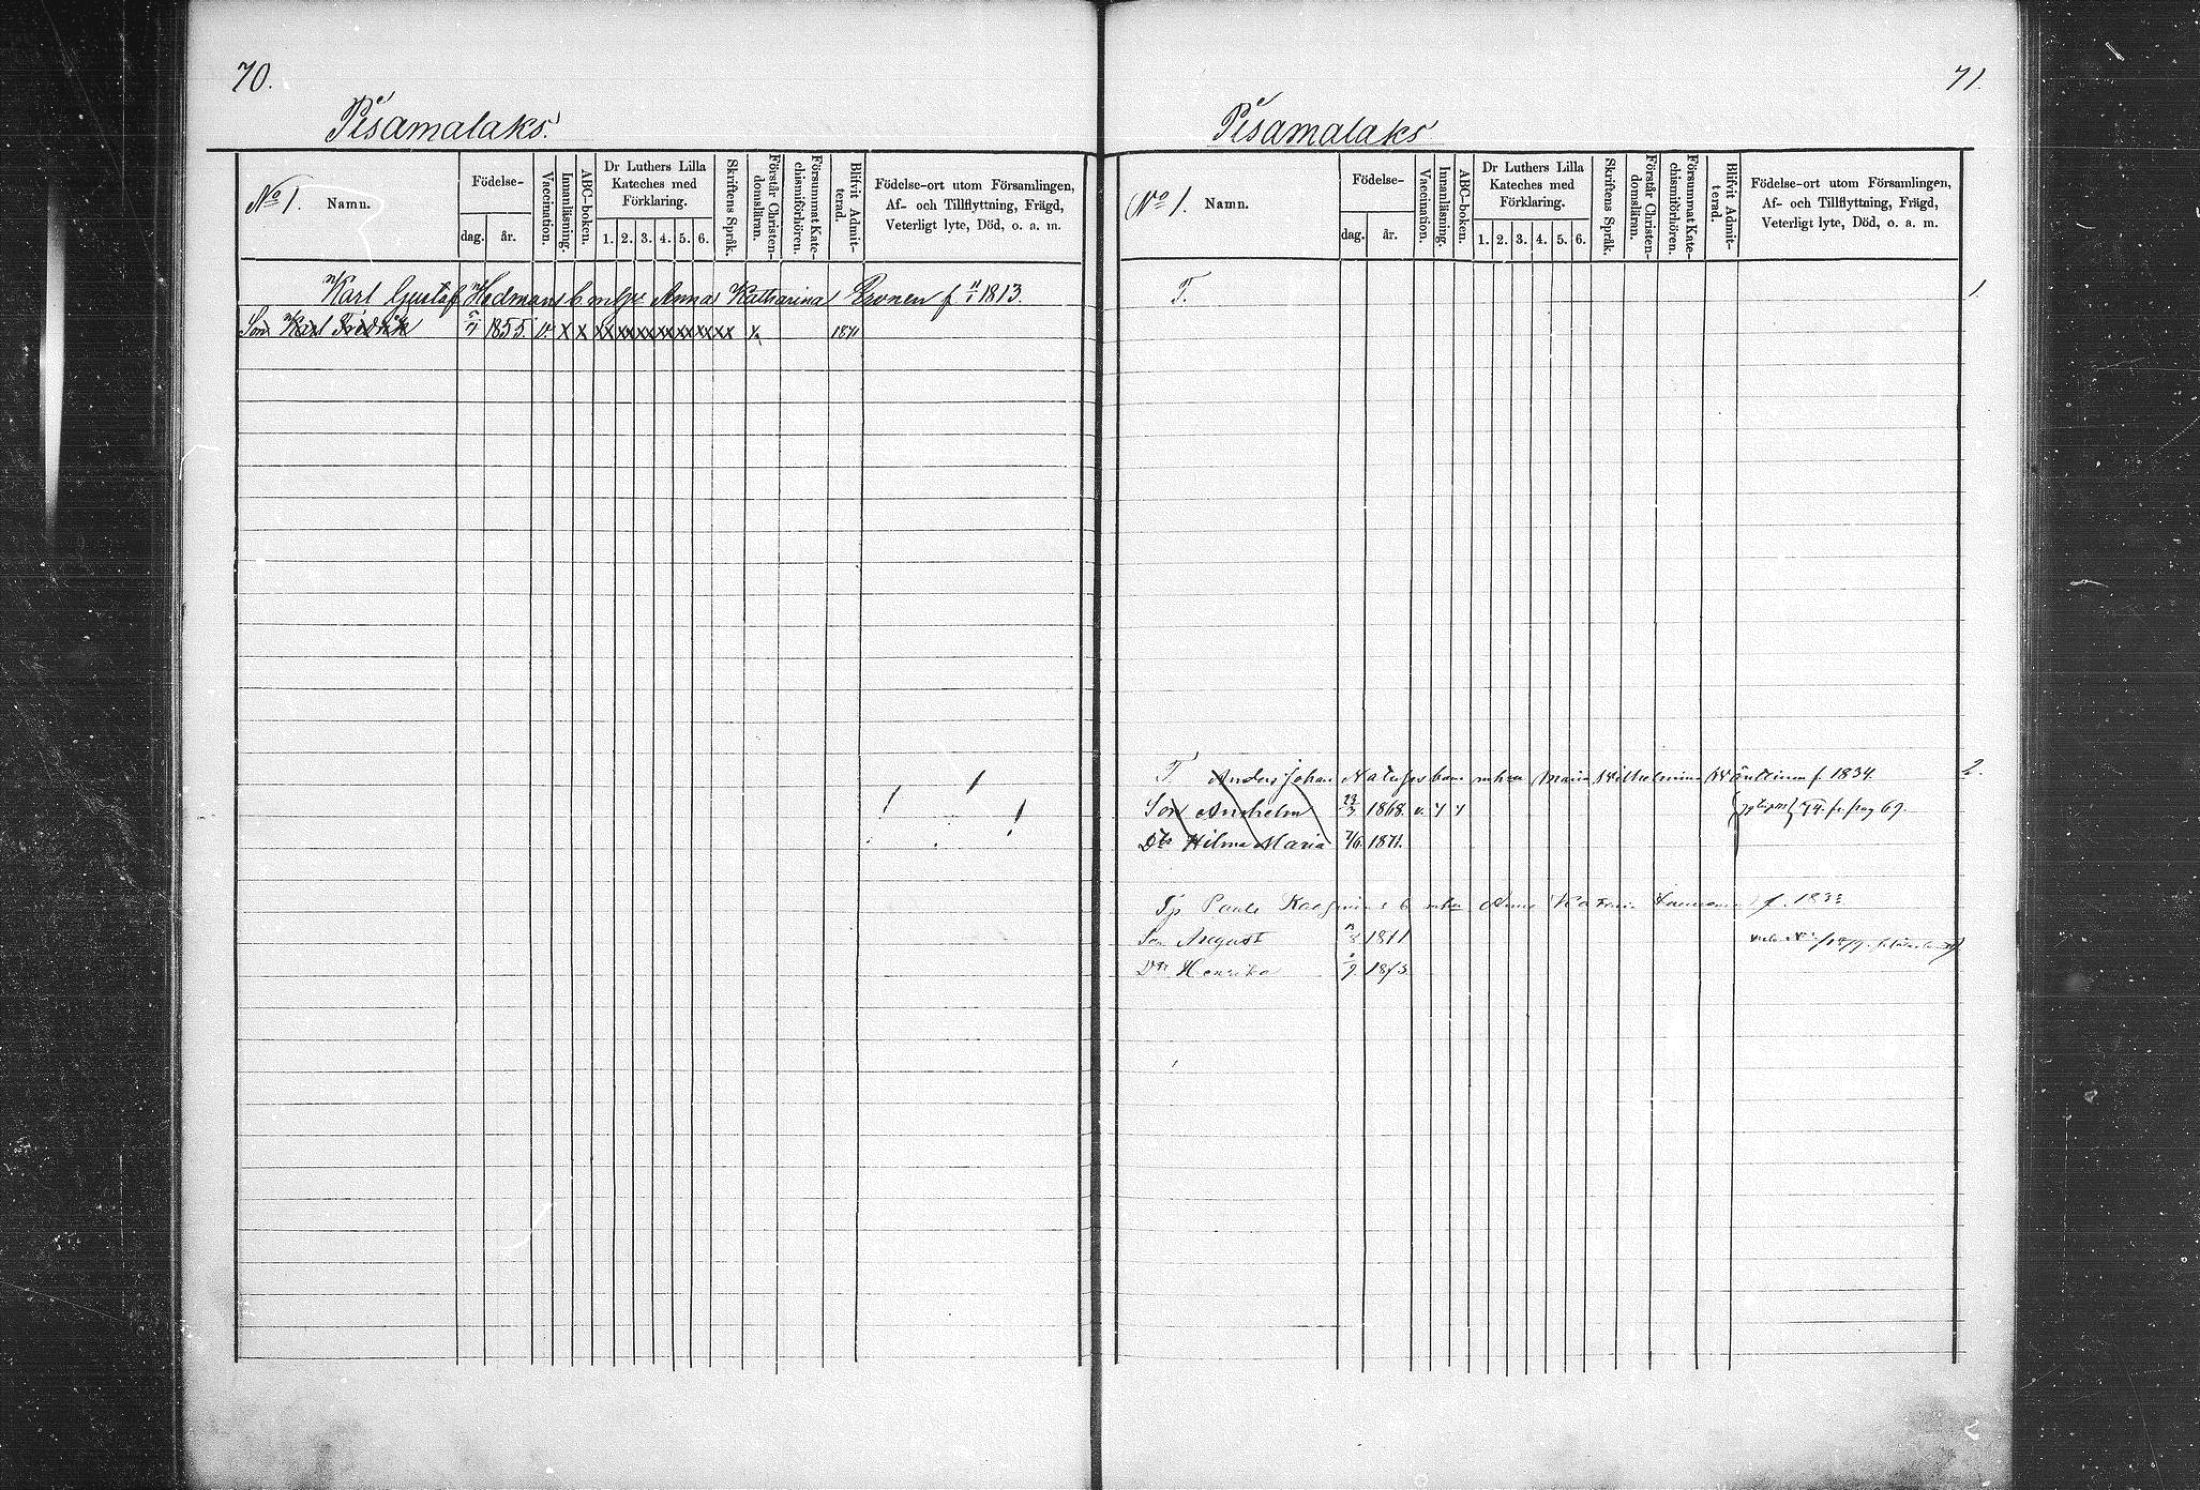 70.
Pisamalaks.
No 1. Namn.
Födelse-
dag. år.
Vaccination.
Innanläsning.
ABC-boken.
Dr Luthers Lilla
Kateches med
Förklaring.
1. 2. 3. 4. 5. 6.
Skriftens Språk.
Förstår Christen-
domsläran.
Försummat Kate-
chismiförhören.
Blifvit Admit-
terad.
Födelse-ort utom Församlingen,
Af- och Tillflyttning, Frägd,
Veterligt lyte, Död, o. a. m.
Karl Gustaf Hedmans Anna Katharina f 1813.
Son Karl Fredrik 1855. v. x x xx xx xx xx xx xx xx x 1871
71.
Pisamalaks
No 1. Namn.
Födelse-
dag. år.
Vaccination.
Innanläsning.
ABC-boken.
Dr Luthers Lilla
Kateches med
Förklaring.
1. 2. 3. 4. 5. 6.
Skriftens Språk.
Förstår Christen-
domsläran.
Försummat Kate-
chismiförhören.
Blifvit Admit-
terad.
Födelse-ort utom Församlingen,
Af- och Tillflyttning, Frägd,
Veterligt lyte, Död, o. a. m.
T. 1.
T. Anders Johan Maria Wilhelmina f. 1834. 2.
Son Anshelm 23/3 1868. v. 69.
Dtr Hilma Maria 7/6 1871.
Anna f. 1833
Son August 1871
Dtr Henrika 1873